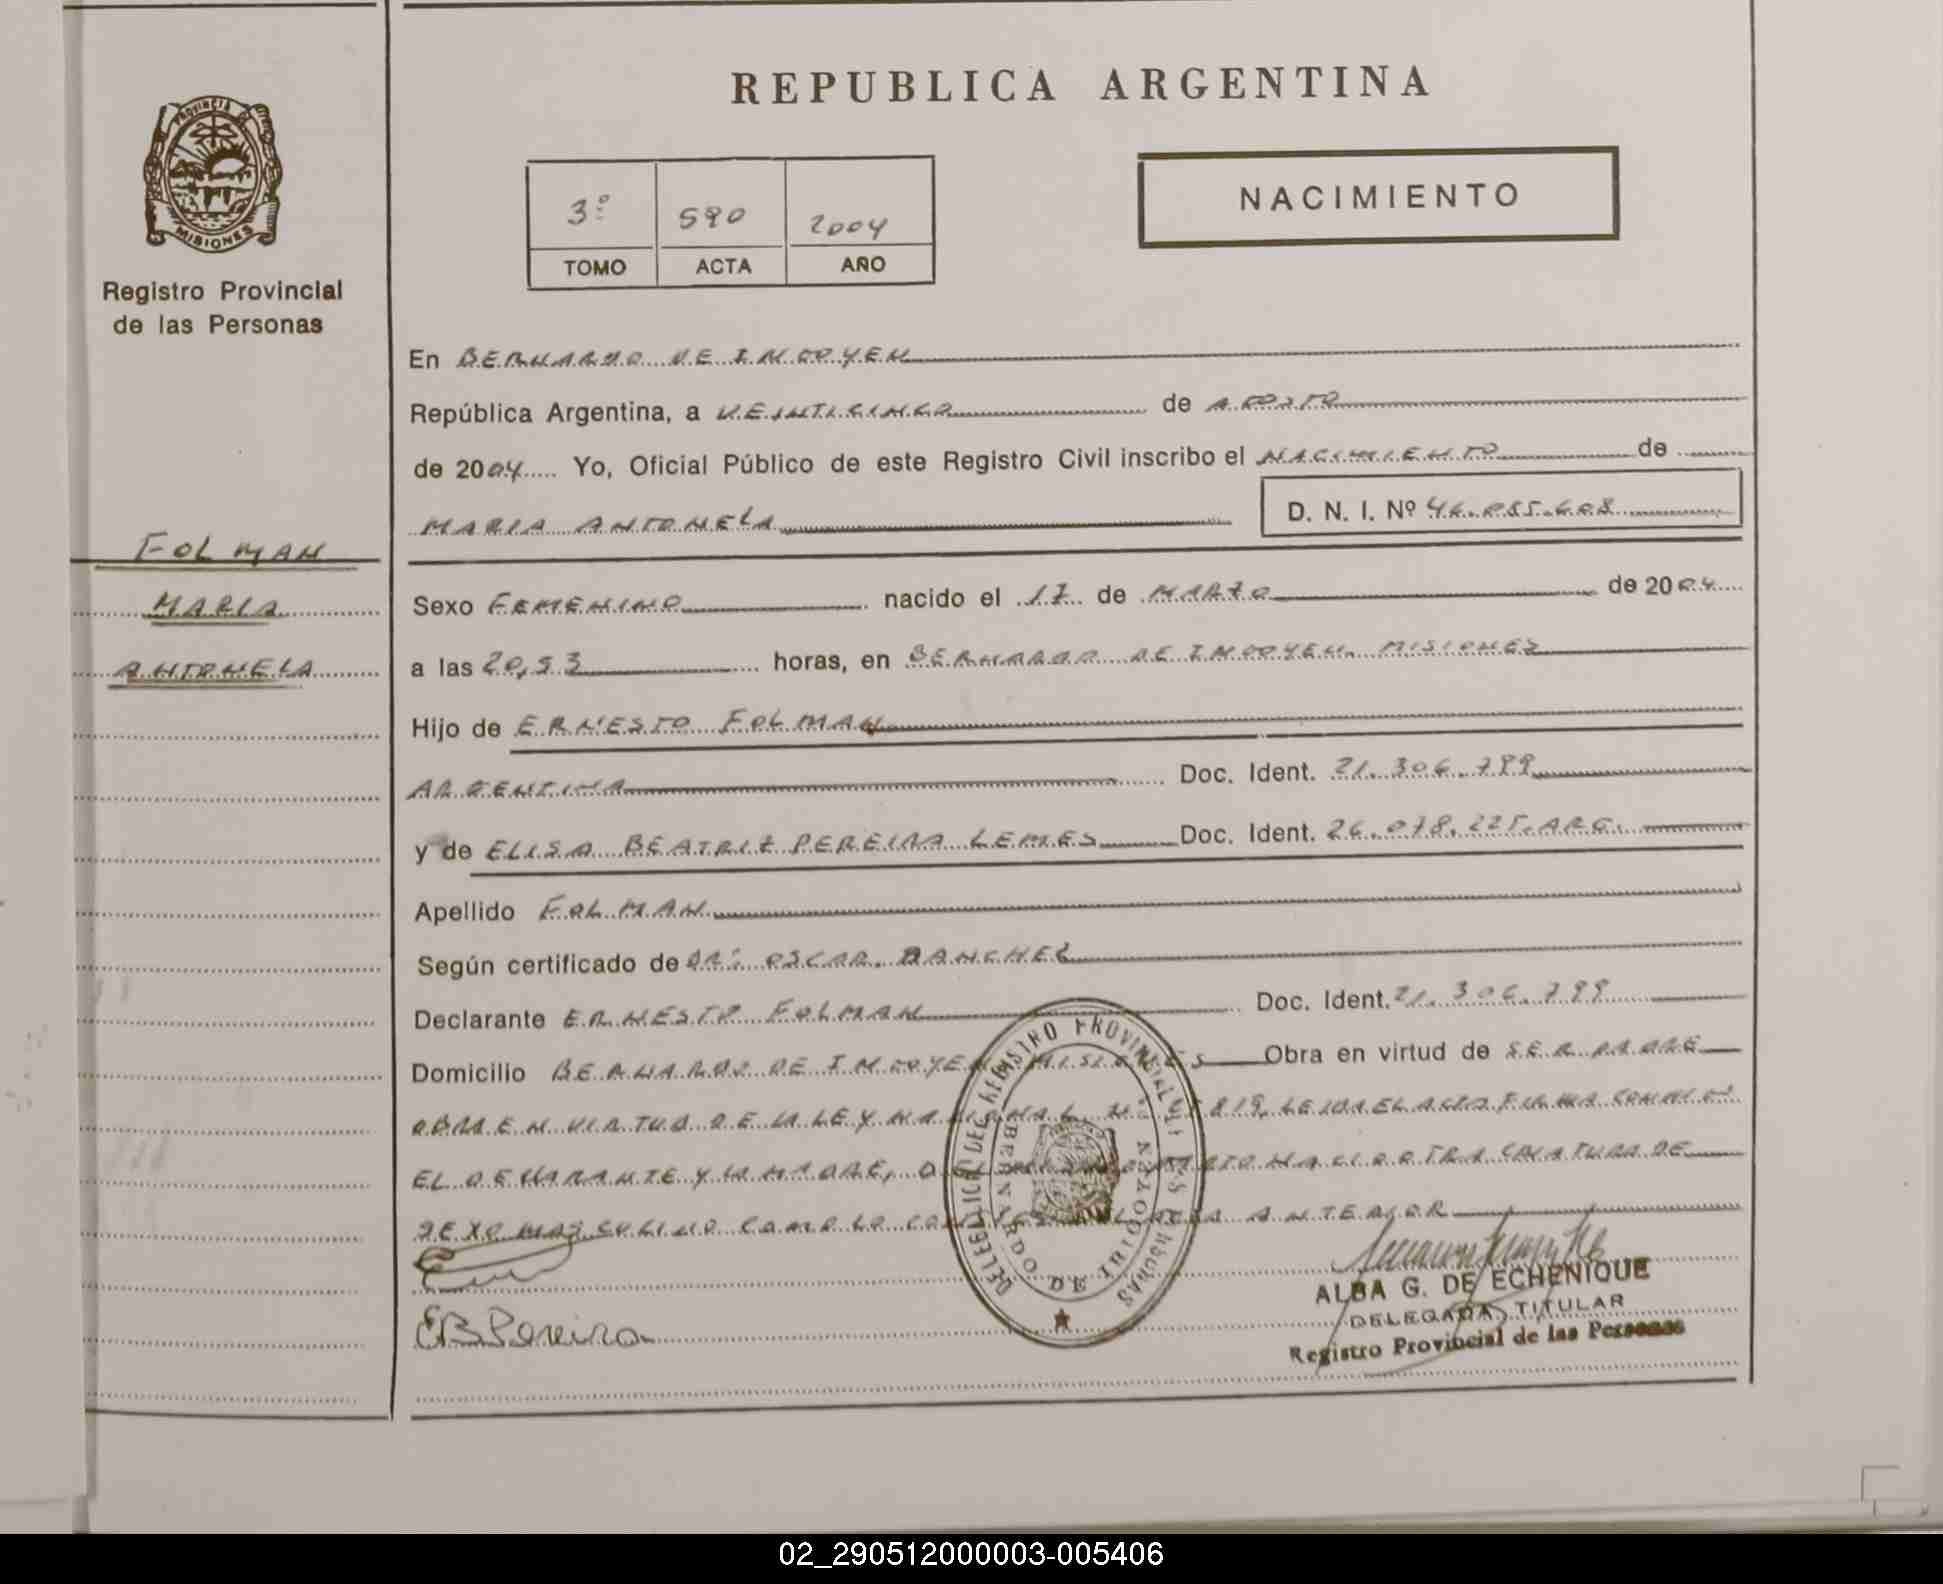 REPUBLICA ARGENTINA
PROVINCIA DE
MISIONES
Registro Provincial
de las Personas
3º 590 2004
TOMO ACTA AÑO
NACIMIENTO
FOLMAN
MARIA
ANTONELA
En BERNARDO DE IRIGOYEN
República Argentina, a VEINTICINCO de AGOSTO
de 2004 Yo, Oficial Público de este Registro Civil inscribo el NACIMIENTO de
MARIA ANTONELA D. N. I. Nº 46.055.608
Sexo FEMENINO nacido el 17 de MARZO de 2004
a las 20,53 horas, en BERNARDO DE IRIGOYEN. MISIONES
Hijo de ERNESTO FOLMAN
ARGENTINA Doc. Ident. 21.306.799
y de ELISA BEATRIZ PEREIRA LEMES Doc. Ident. 26.078.225. ARG.
Apellido FOLMAN
Según certificado de DR. OSCAR SANCHEZ
Declarante ERNESTO FOLMAN Doc. Ident. 21.306.799
Domicilio BERNARDO DE IRIGOYEN MISIONES Obra en virtud de SER PADRE
OBRA EN VIRTUD DE LA LEY NACIONAL Nº 25819, LEIDA EL ACTA FIRMA CONMIGO
EL DECLARANTE Y LA MADRE, NACIO OTRA CRIATURA DE
SEXO MASCULINO COMO LO ACTA ANTERIOR
EBPereira
DELEGACION DEL REGISTRO PROVINCIAL DE LAS PERSONAS
BERNARDO DE IRIGOYEN
ALBA G. DE ECHENIQUE
DELEGADA TITULAR
Registro Provincial de las Personas
02_290512000003-005406